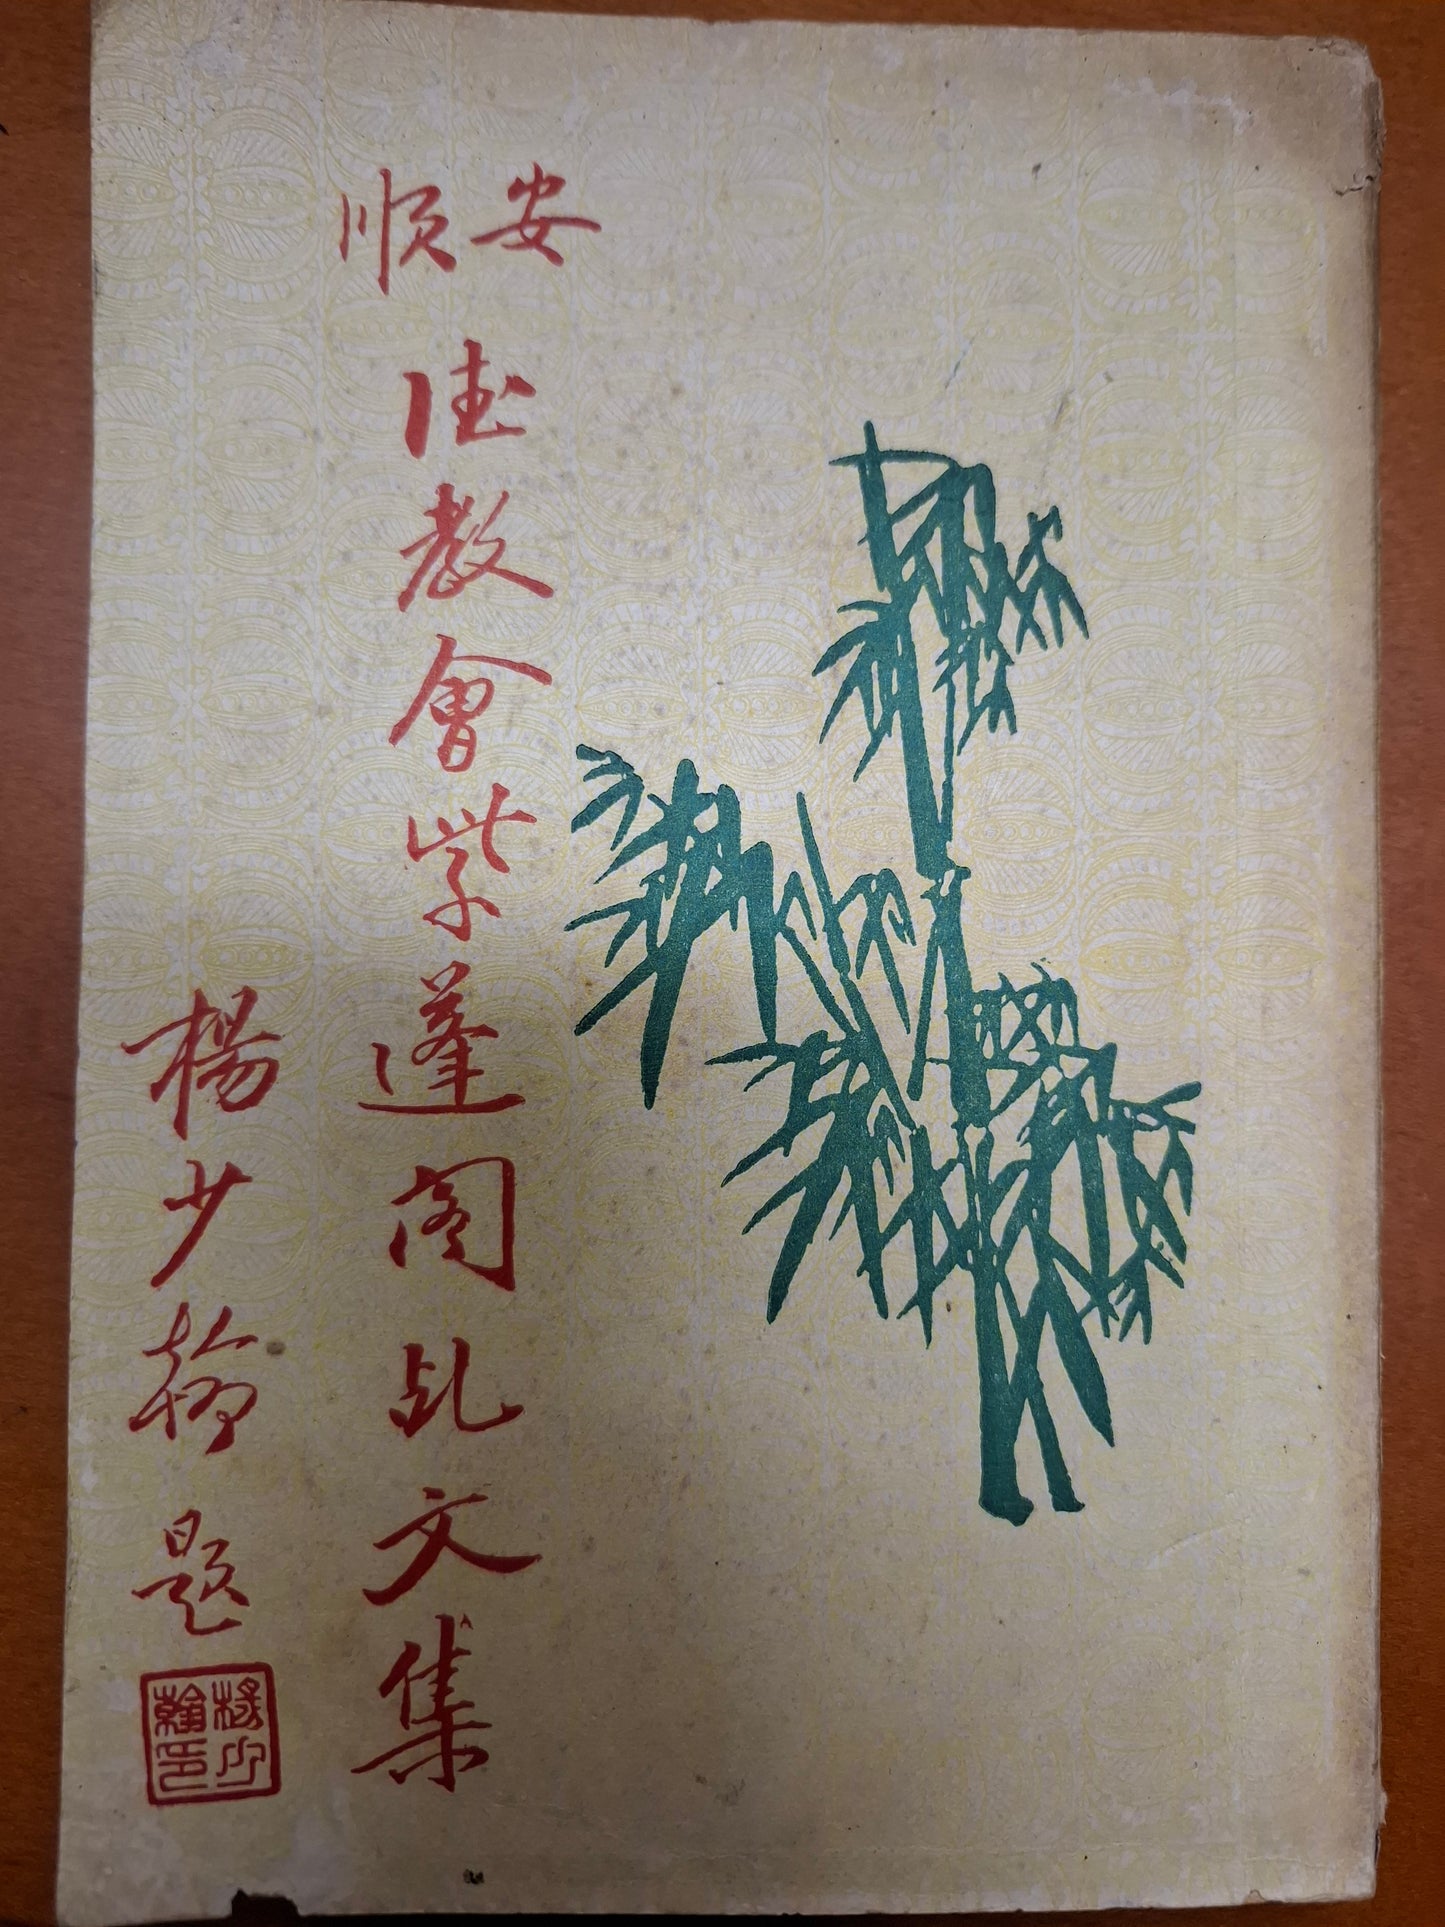 安順
德教會紫蓬閣乩文集
楊少翰題
楊少翰印